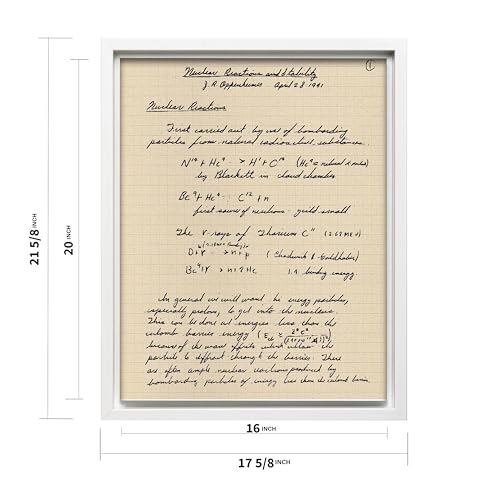 ①
Nuclear Reactions and Stability
J. R. Oppenheimer April 23 1941
Nuclear Reactions
First carried out by use of bombarding
particles from natural radioactive substances.
by Blackett in cloud chamber
Be⁹ + He⁴ C¹² + n
first source of neutrons - yield small
The γ-rays of Thorium C" (2.62 MEV)
D + γ → n + p (Chadwick & Goldhaber)
binding energy.
In general we will want hi energy particles,
especially protons, to get into the nucleus.
This can be done at energies less than the
coulomb barrier energy
because of the wave effects which allow the
particle to diffract through the barrier. There
are often ample nuclear reactions produced by
bombarding particles of energy less than the coulomb barrier.
21 5/8 INCH
20 INCH
16 INCH
17 5/8 INCH